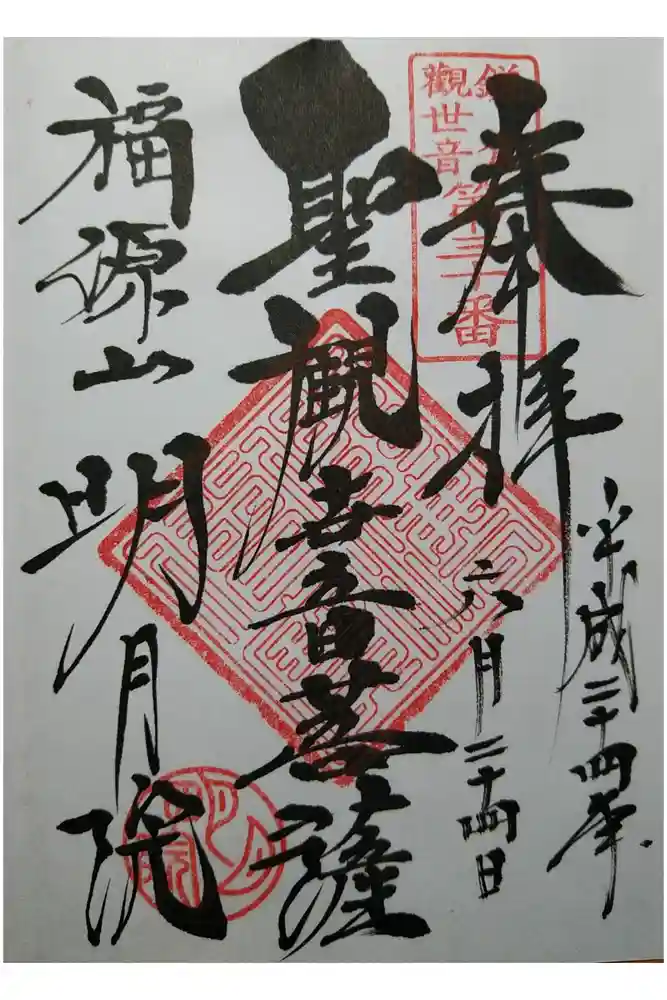 奉拝
平成二十四年
六月二十四日
観世音第三十番
聖観世音菩薩
福源山
明月院